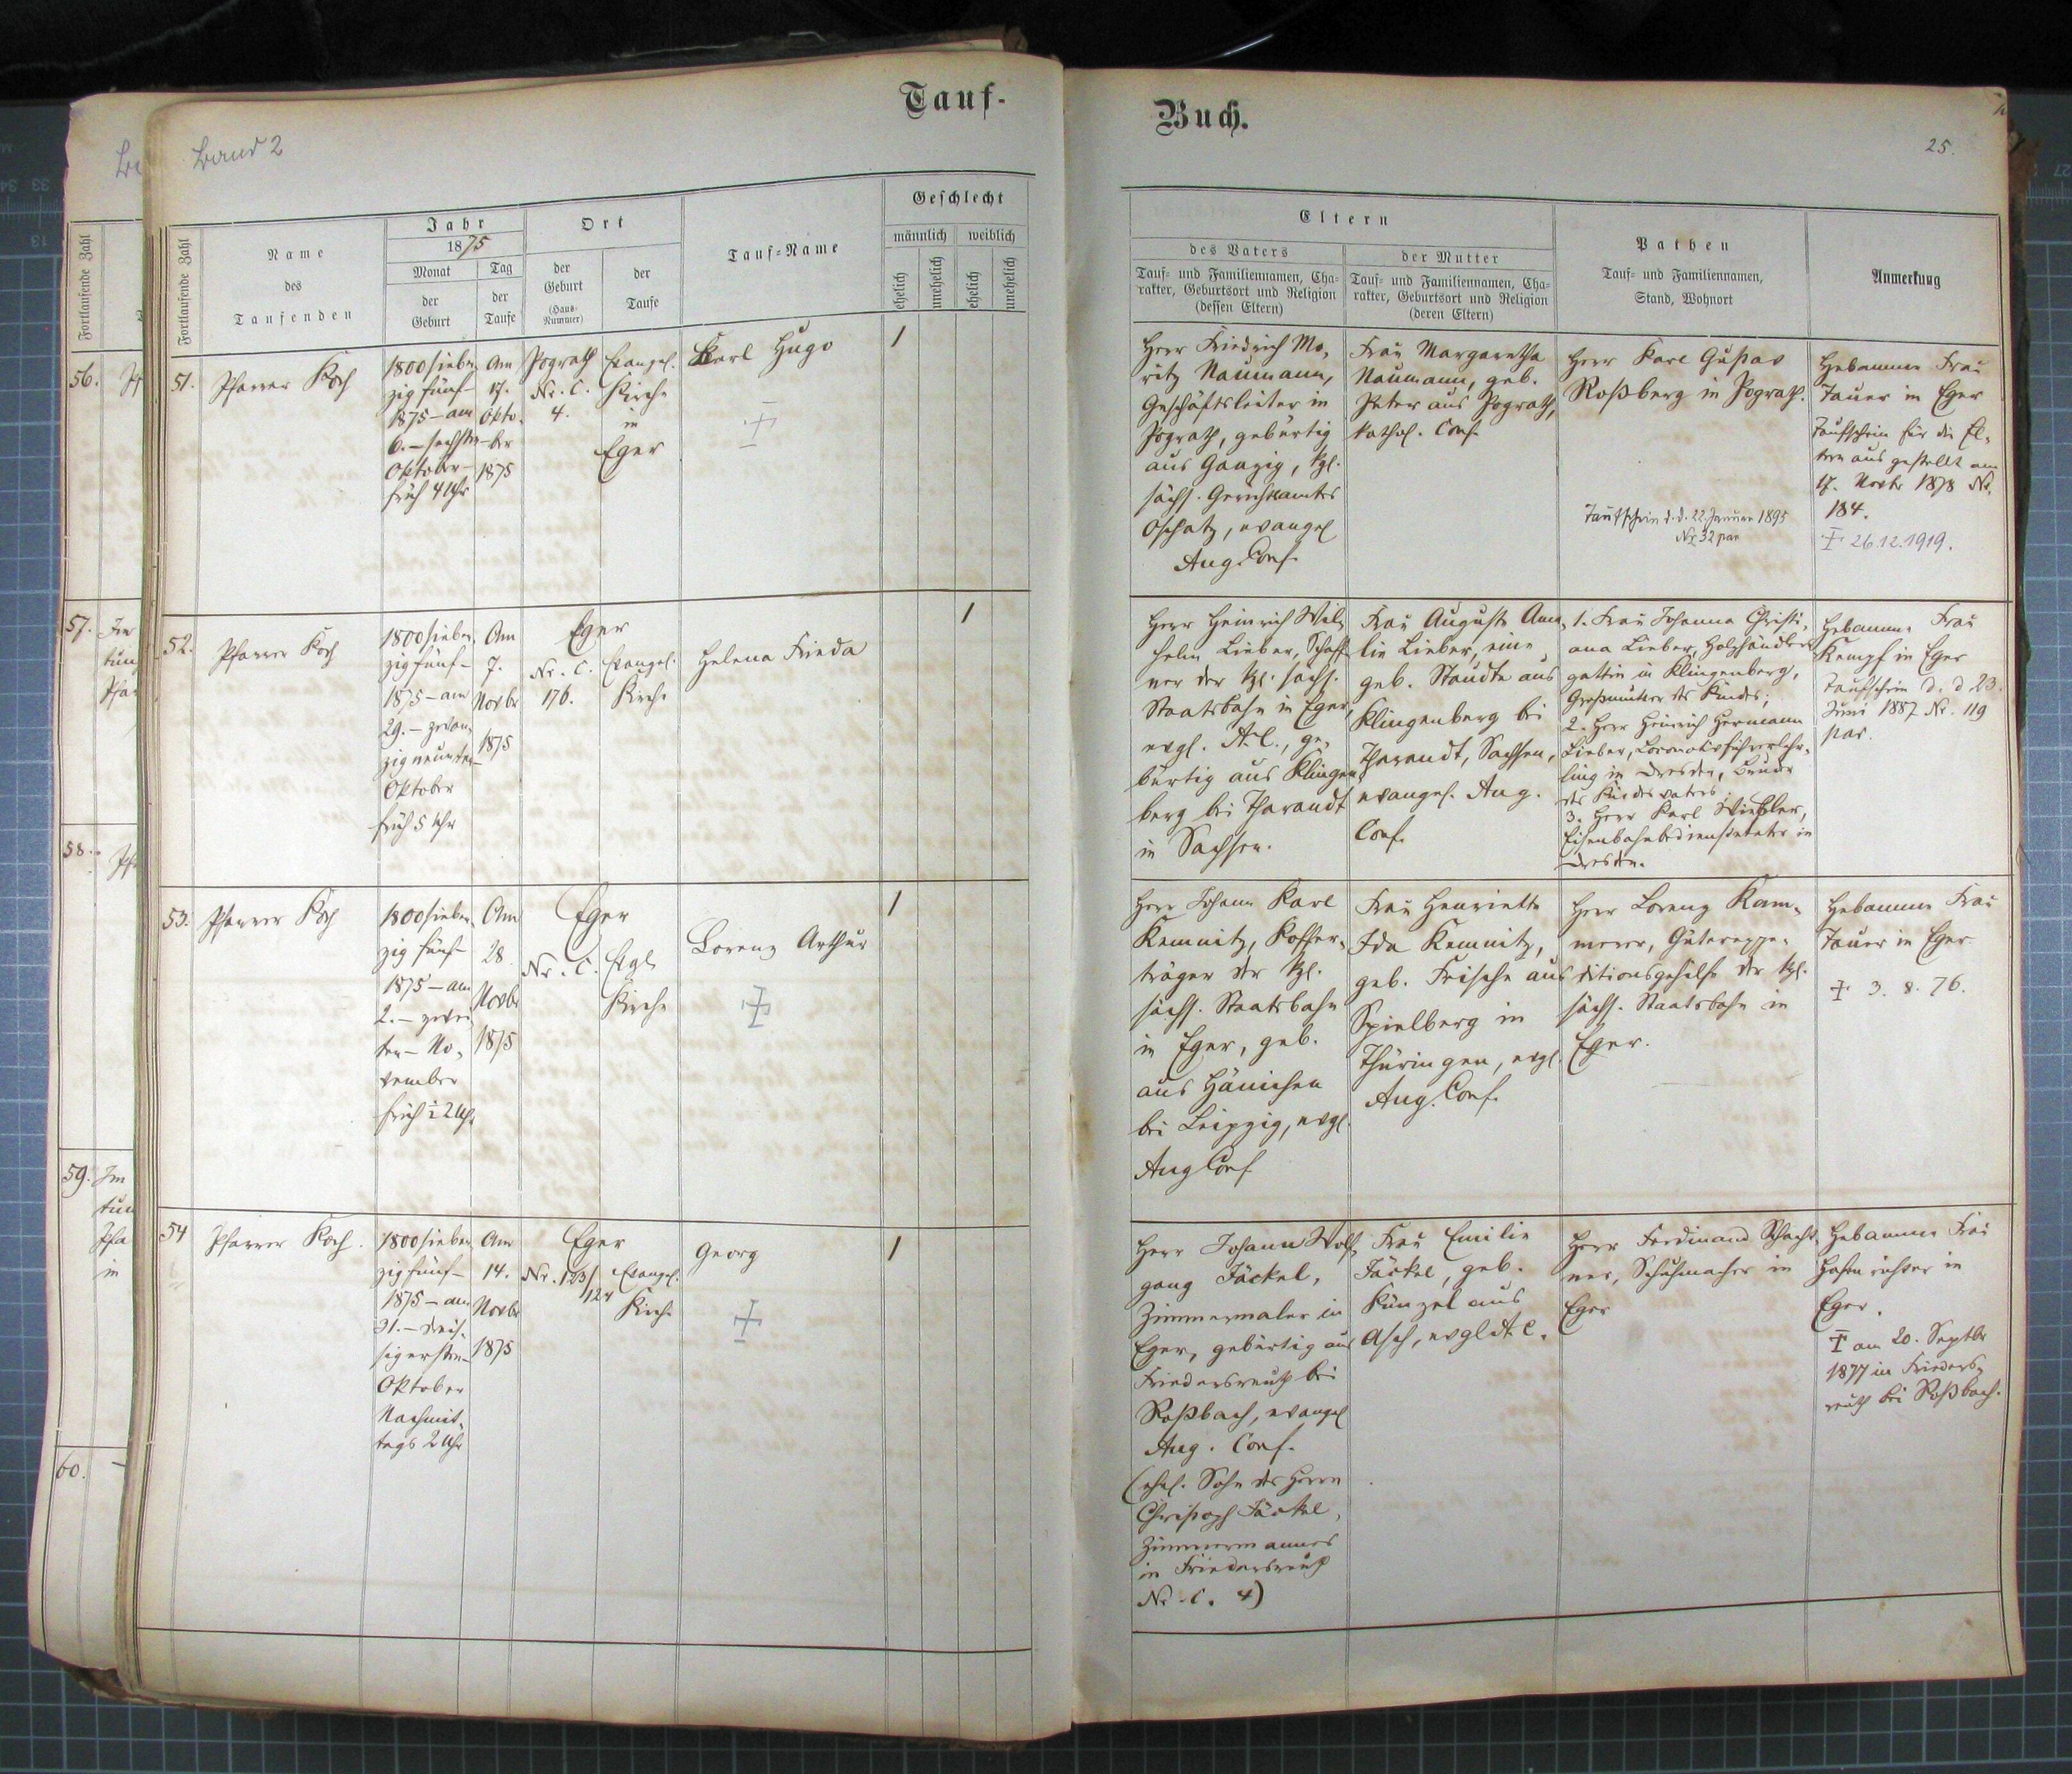 Tauf-
Buch.
Band 2
25.
Fortlaufende Zahl
Fortlaufende Zahl
Name
des
Taufenden
Jahr
1875
Monat
der
Geburt
Tag
der
Taufe
Ort
der
Geburt
(Haus-
Nummer)
der
Taufe
Tauf-Name
Geschlecht
männlich
weiblich
ehelich
unehelich
ehelich
unehelich
Eltern
des Vaters
Tauf- und Familiennamen, Cha-
rakter, Geburtsort und Religion
(dessen Eltern)
der Mutter
Tauf- und Familiennamen, Cha-
rakter, Geburtsort und Religion
(deren Eltern)
Pathen
Tauf- und Familiennamen,
Stand, Wohnort
Anmerkung
56.
57.
58.
59.
60.
51.
Pfarrer Koch
1800 sieben-
zig fünf-
1875 – am
6. – sechsten
Oktober –
früh 4 Uhr
Am
17.
Okto-
ber
1875
Pograth
Nr. C.
4.
Evangel.
Kirche
in
Eger
Karl Hugo
1
Herr Friedrich Mo-
ritz Naumann,
Geschäftsleiter in
Pograth, gebürtig
aus Ganzig, kgl.
sächs. Gerichtsamtes
Oschatz, evangel
Aug. Conf.
Frau Margaretha
Naumann, geb.
Peter aus Pograth,
kathol. Conf.
Herr Karl Gustav
Roßberg in Pograth.
Taufschein d. d. 22. Januar 1895
Nr. 32 par
Hebamme Frau
Tauer in Eger
Taufschein für die El-
tern ausgestellt am
17. Novbr 1878 Nr.
184.
26.12.1919.
52.
Pfarrer Koch
1800 sieben-
zig fünf-
1875 – am
29. – zwan-
zigneunten
Oktober
früh 5 Uhr
Am
7.
Novbr
1875
Eger
Nr. C.
176.
Evangel.
Kirche
Helena Frieda
1
Herr Heinrich Wil-
helm Lieber, Schaff-
ner der kgl. sächs.
Staatsbahn in Eger,
evgl. A. C., ge-
bürtig aus Klingen-
berg bei Tharandt
in Sachsen.
Frau Auguste Ama-
lie Lieber, eine
geb. Staudte aus
Klingenberg bei
Tharandt, Sachsen,
evangel. Aug.
Conf.
1. Frau Johanna Christi-
ana Lieber, Holzhändlers-
gattin in Klingenberg,
Großmutter des Kindes;
2. Herr Heinrich Hermann
Lieber, Locomotivführerlehr-
ling in Dresden, Bruder
des Kindesvaters.
3. Herr Karl
Eisenbahnbediensteter in
Dresden.
Hebamme Frau
Kempf in Eger
Taufschein d. d 23.
Juni 1887 Nr. 119
par.
53.
Pfarrer Koch
1800 sieben-
zig fünf-
1875 – am
2. – zwei-
ten – No-
vember
früh ½ 2 Uhr
Am
28.
Novbr
1875
Eger
Nr. C.
Evgl.
Kirche
Lorenz Arthur
1
Herr Johann Karl
Kemnitz, Koffer-
träger der kgl.
sächs. Staatsbahn
in Eger, geb.
aus Hänichen
bei Leipzig, evgl.
Aug Conf
Frau Henriette
Ida Kemnitz,
geb. Frische aus
Spielberg in
Thüringen, evgl.
Aug. Conf.
Herr Lorenz Kam-
merer, Güterexpe-
ditionsgehilfe der kgl.
sächs. Staatsbahn in
Eger.
Hebamme Frau
Tauer in Eger
3. 8. 76.
54
Pfarrer Koch.
1800 sieben-
zig fünf-
1875 – am
31. – dreis-
sigersten –
Oktober
Nachmit-
tags 2 Uhr
Am
14.
Novbr
1875
Eger
Nr. 123/
124
Evangel.
Kirche
Georg
1
Herr Johann Wolf-
gang Jäckel,
Zimmermaler in
Eger, gebürtig aus
Friedersreuth bei
Roßbach, evangel
Aug. Conf.
(ehel. Sohn des Herrn
Christoph Jäckel,
Zimmermannes
in Friedersreuth
Nr. C. 4)
Frau Emilie
Jäckel, geb.
Künzel aus
Asch, evgl. A. C.
Herr Ferdinand Schacht-
ner, Schuhmacher in
Eger
Hebamme Frau
Hafenrichter in
Eger.
am 20. Septbr
1877 in Frieders-
reuth bei Roßbach.